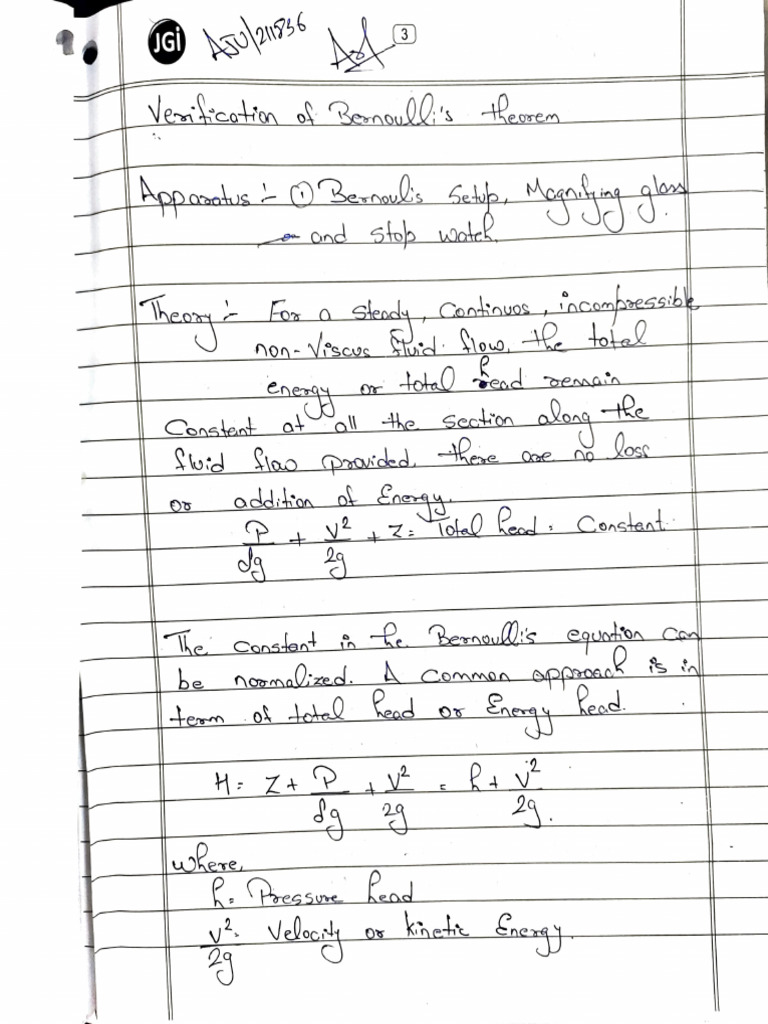 JGi AJU/211836 3
Verification of Bernoulli's theorem
Apparatus :- ① Bernouli's Setup, Magnifying glass
and stop watch.
Theory :- For a steady, Continuos, incompressible
non-Viscus fluid flow, the total
energy or total head remain
Constant at all the section along the
fluid flow provided, there are no loss
or addition of Energy.
P/ρg + V²/2g + Z = Total head = Constant
The constant in the Bernoulli's equation can
be normalized. A common approach is in
term of total head or Energy head.
H = Z + P/ρg + V²/2g = h + V²/2g.
where,
h = Pressure head
V²/2g = Velocity or kinetic Energy.